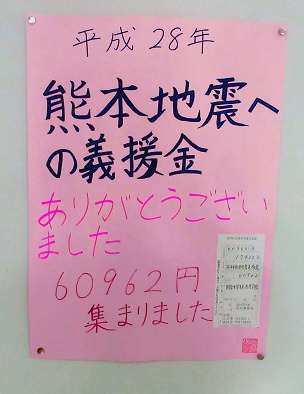 平成28年
熊本地震へ
の義援金
ありがとうござい
ました
60962円
集まりました